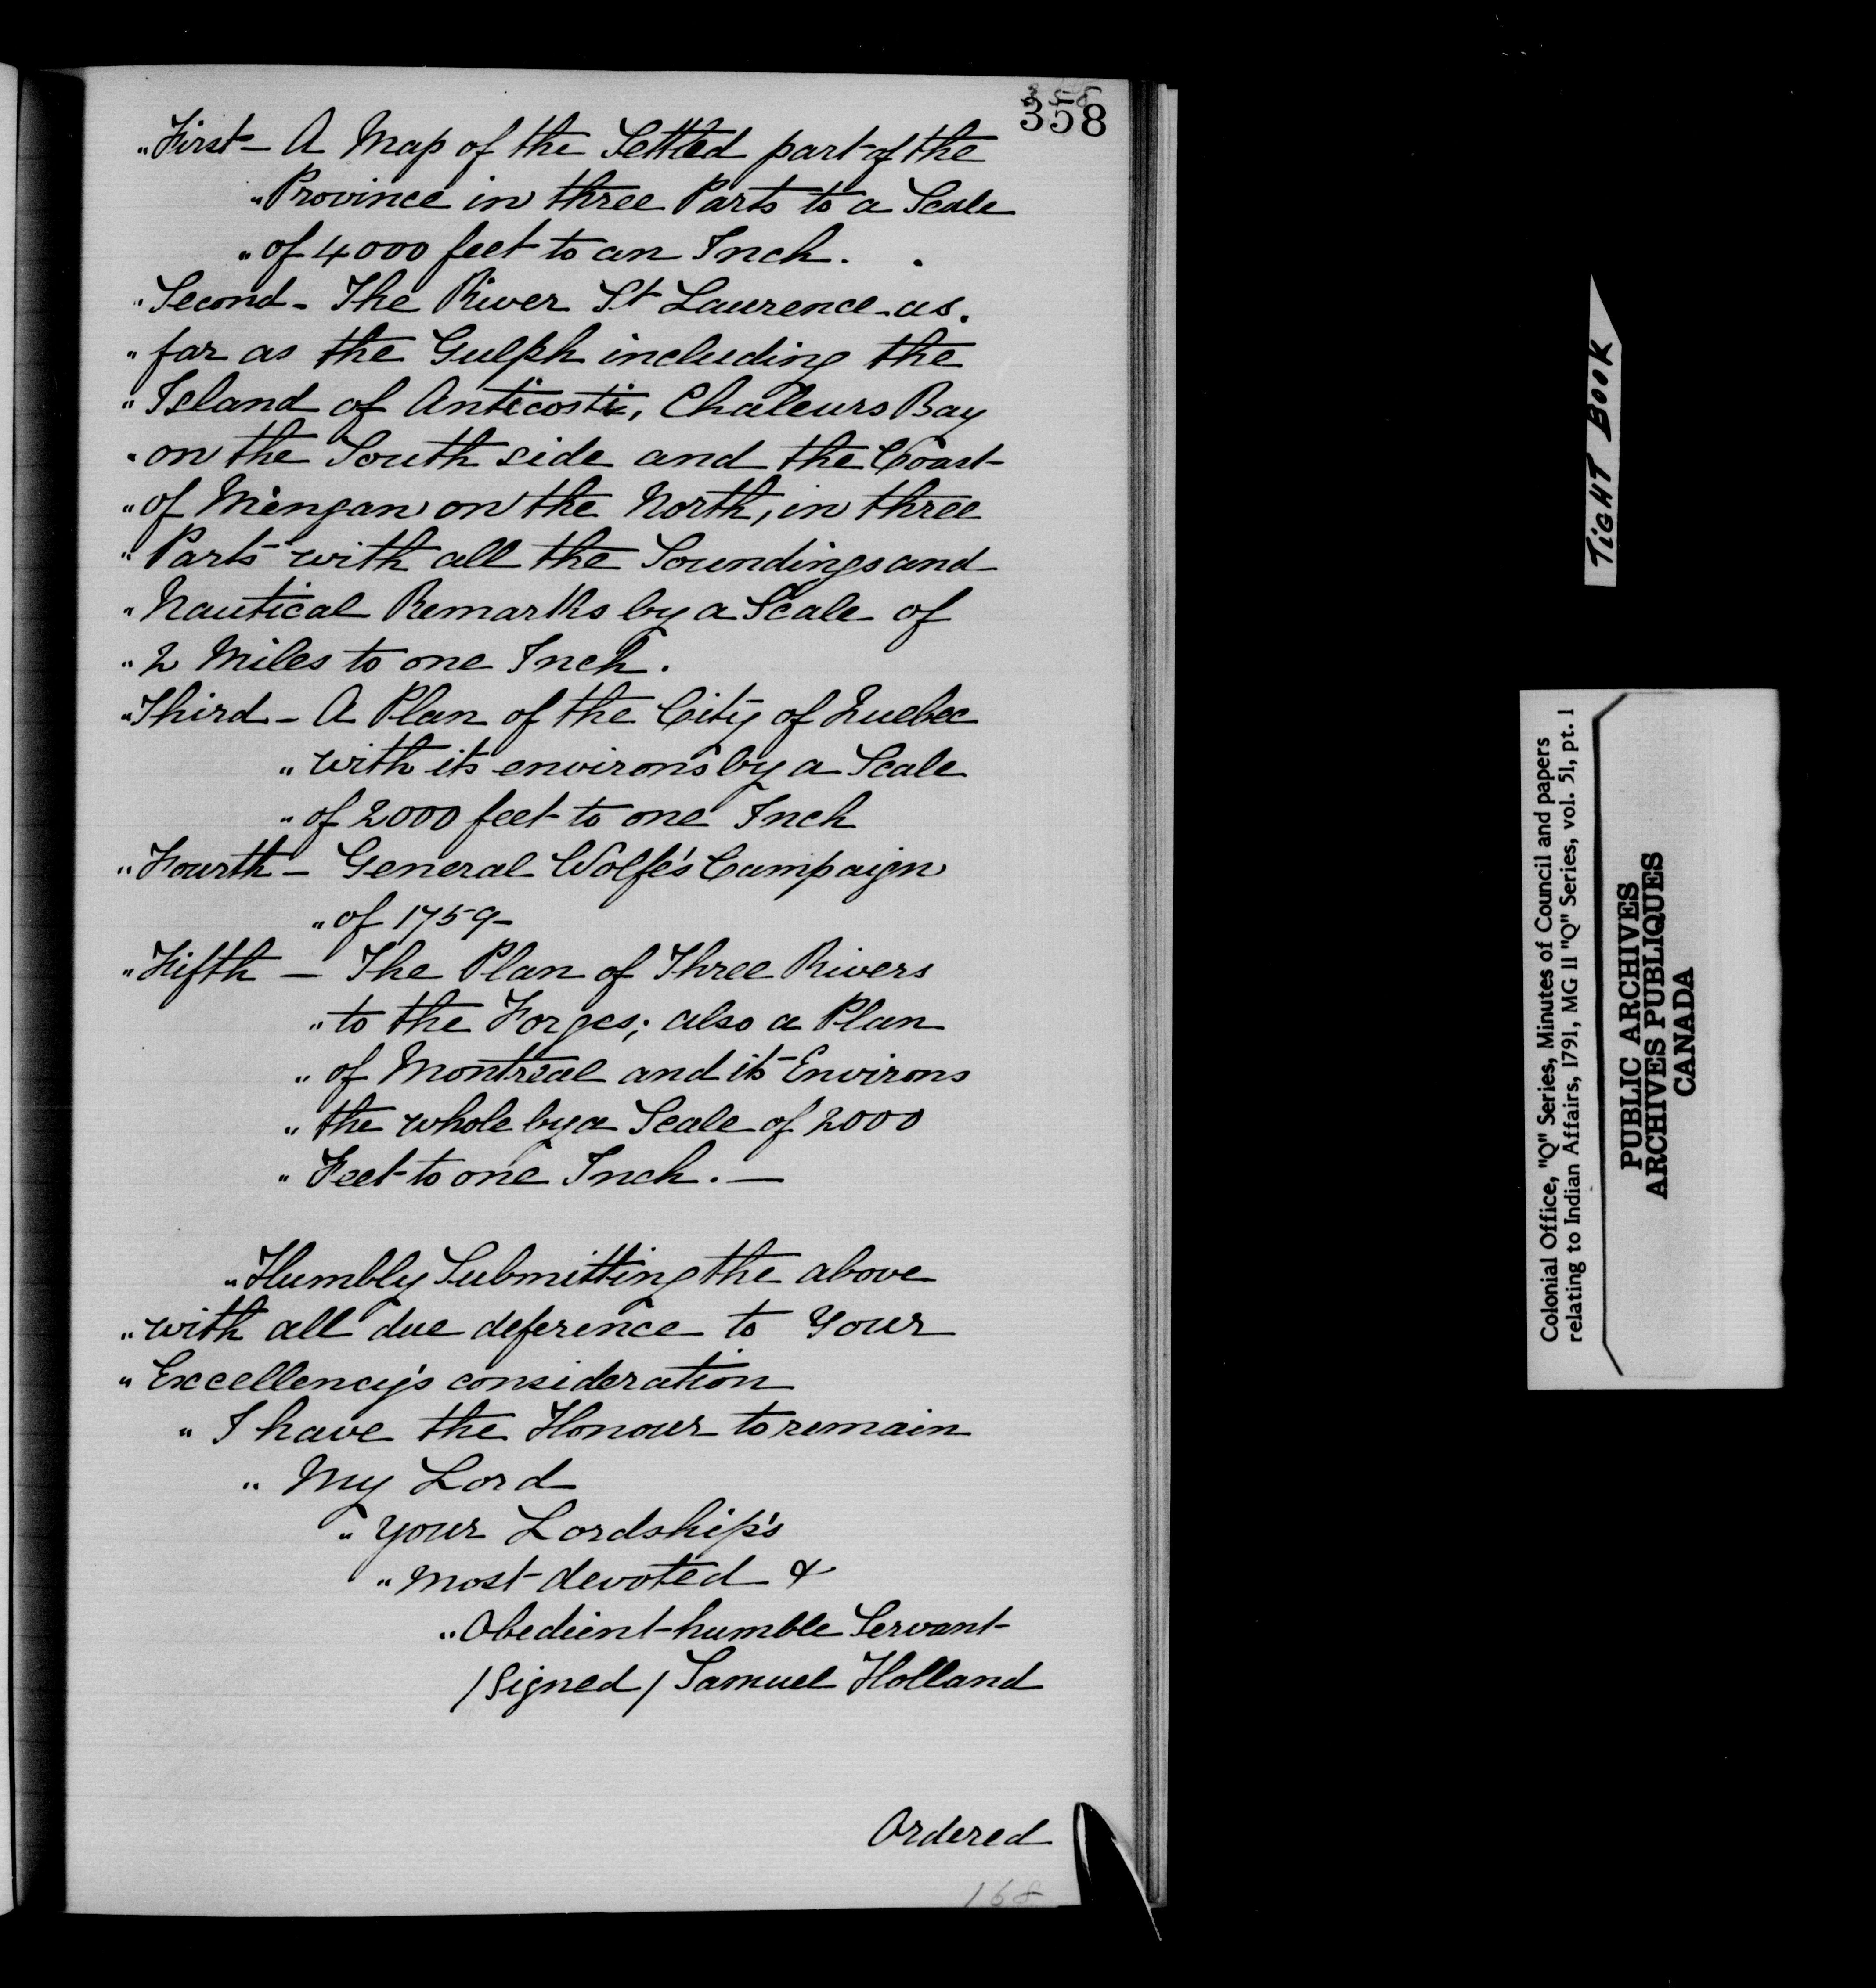 358
358
"First - A Map of the Settled part of the
"Province in three Parts to a Scale
"of 4000 feet to an Inch.
"Second - The River St Laurence as
"far as the Gulph including the
"Island of Anticosti, Chaleurs Bay
"on the South side and the Coast
"of Mingan on the North, in three
"Parts with all the Soundings and
"Nautical Remarks by a Scale of
"2 Miles to one Inch.
"Third - A Plan of the City of Quebec
"with its environs by a Scale
"of 2000 feet to one Inch
"Fourth - General Wolfe's Campaign
"of 1759 -
"Fifth - The Plan of Three Rivers
"to the Forges; also a Plan
"of Montreal and its Environs
"the whole by a Scale of 2000
"Feet to one Inch. -
"Humbly Submitting the above
"with all due deference to Your
"Excellency's consideration
"I have the Honour to remain
"My Lord
"your Lordship's
"most devoted &
"Obedient humble Servant
/Signed/ Samuel Holland
Ordered
168
TIGHT BOOK
Colonial Office, "Q" Series, Minutes of Council and papers
relating to Indian Affairs, 1791, MG 11 "Q" Series, vol. 51, pt. 1
PUBLIC ARCHIVES
ARCHIVES PUBLIQUES
CANADA